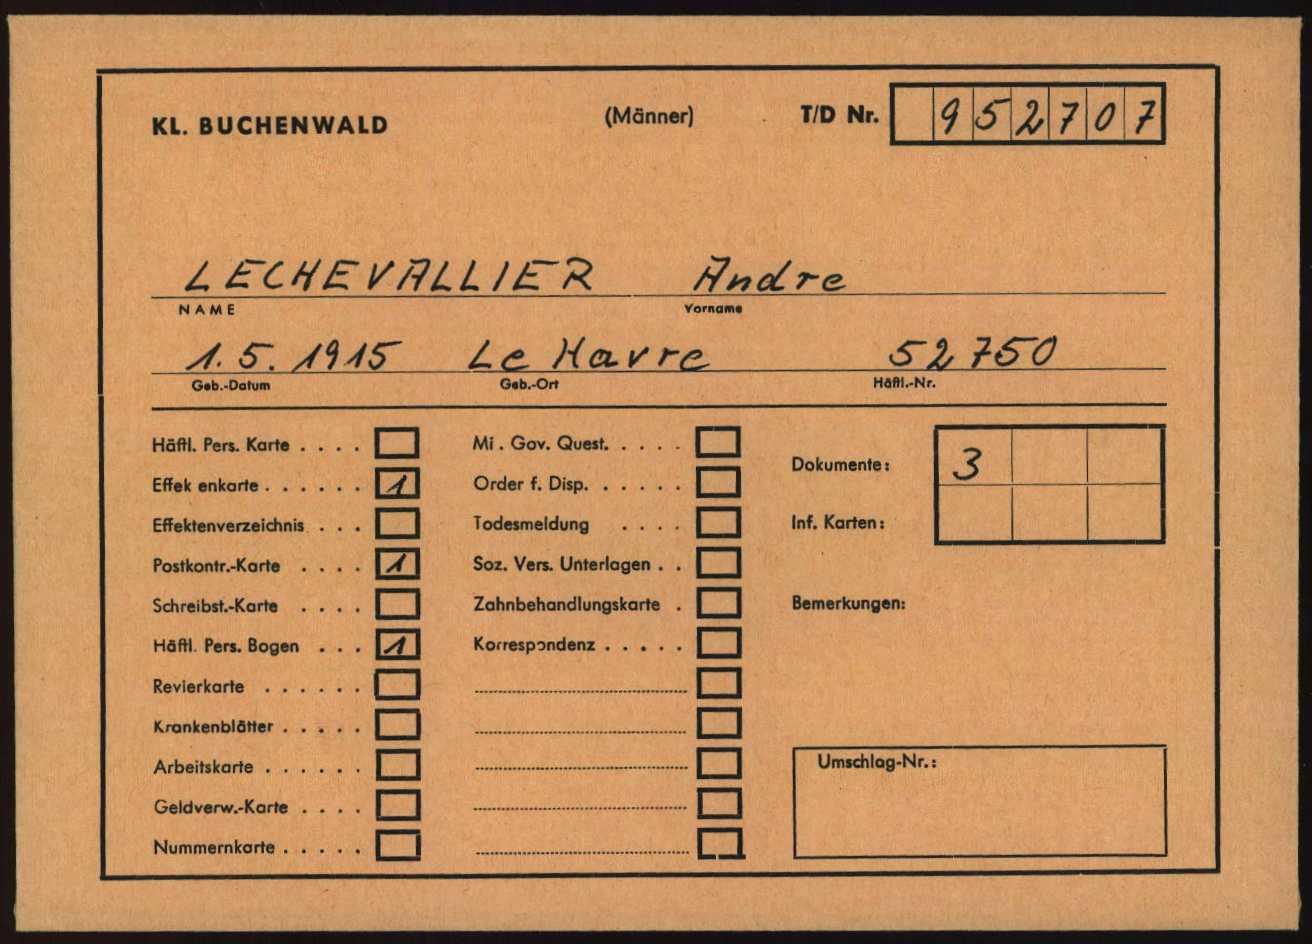 KL. BUCHENWALD (Männer) T/D Nr. 952707
LECHEVALLIER Andre
NAME Vorname
1.5.1915 Le Havre 52750
Geb.-Datum Geb.-Ort Häftl.-Nr.
Häftl. Pers. Karte . . . . Mi. Gov. Quest. . . . .
Dokumente: 3
Effek enkarte . . . . . . 1 Order f. Disp. . . . . .
Effektenverzeichnis . . . Todesmeldung . . . . Inf. Karten:
Postkontr.-Karte . . . . 1 Soz. Vers. Unterlagen . .
Schreibst.-Karte . . . . Zahnbehandlungskarte . Bemerkungen:
Häftl. Pers. Bogen . . . 1 Korrespondenz . . . . .
Revierkarte . . . . . .
Krankenblätter . . . . .
Arbeitskarte . . . . . . Umschlag-Nr.:
Geldverw.-Karte . . . .
Nummernkarte . . . . .